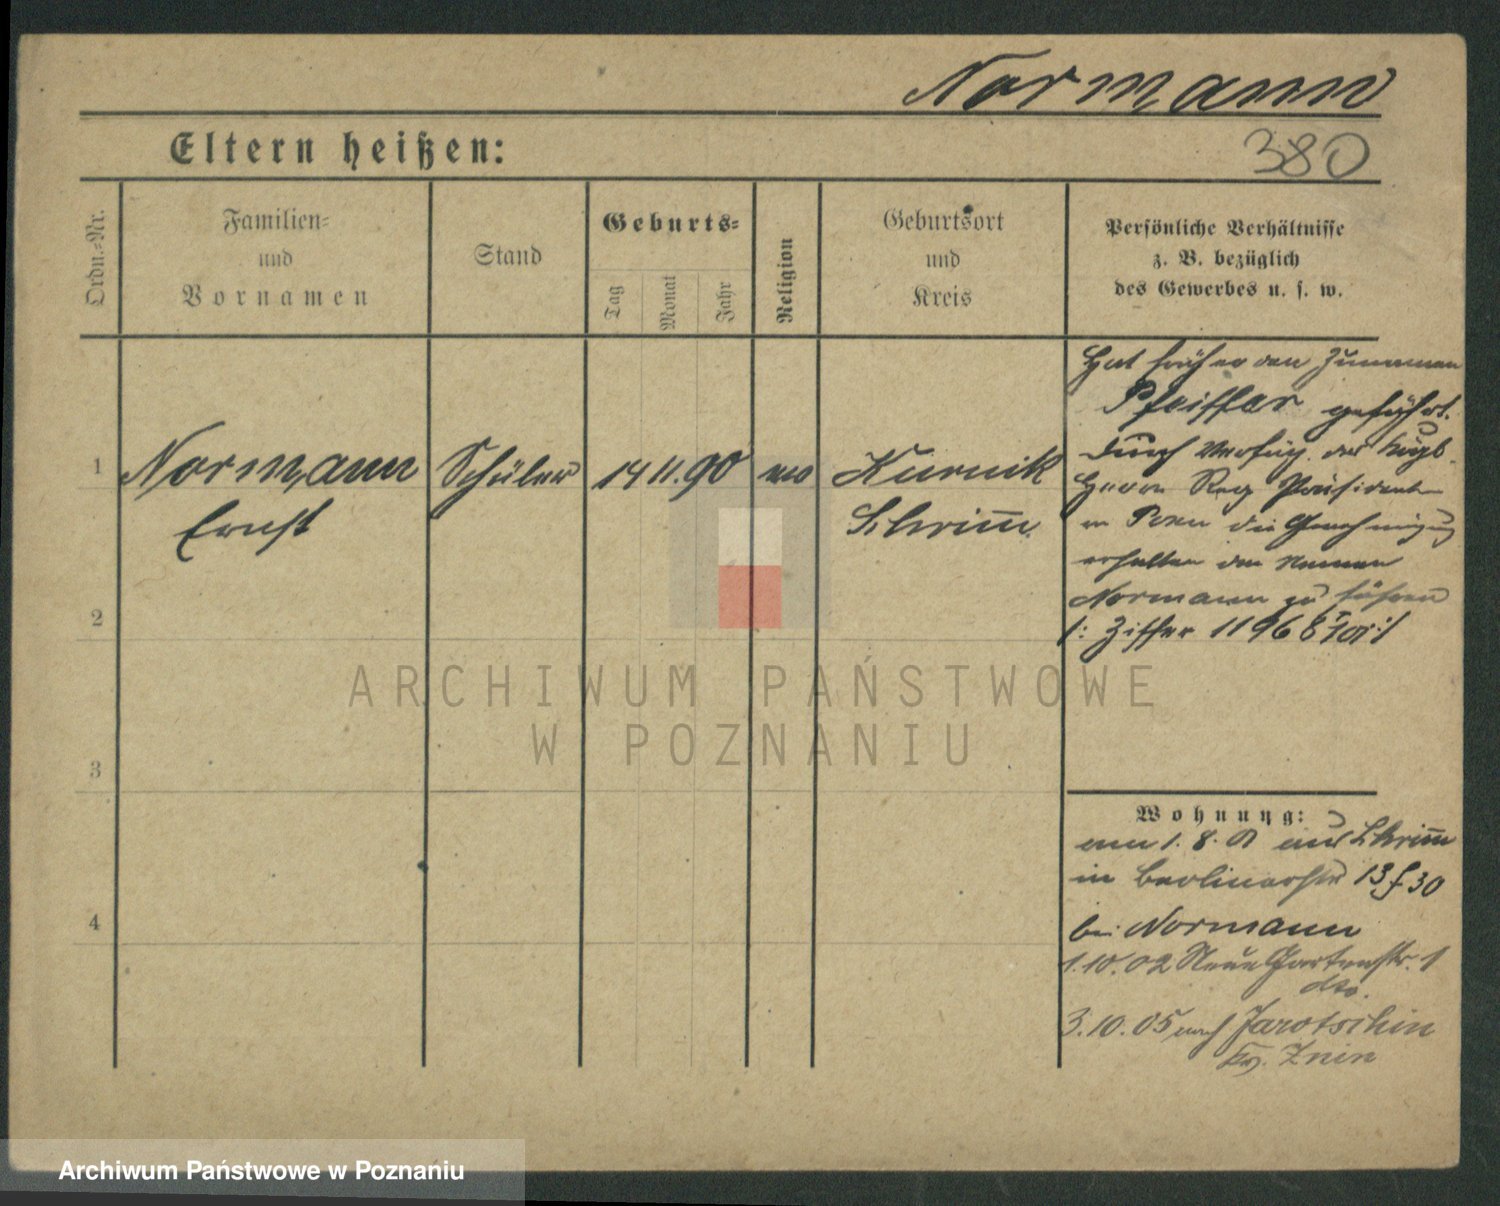 Normann
Eltern heißen:
380
Ordn.-Nr.
Familien-
und
Vornamen
Stand
Geburts-
Tag
Monat
Jahr
Religion
Geburtsort
und
Kreis
Persönliche Verhältnisse
z. B. bezüglich
des Gewerbes u. s. w.
1
Normann
Ernst
Schüler
14 11. 90
Kurnik
Schrimm
Hat früher den Zunamen
Pfeiffer geführt.
Durch Verfüg. des
Herrn Reg Präsidenten
in Posen die Genehmigung
erhalten den Namen
Normann zu führen
/: Ziffer 1196
2
3
4
Wohnung:
am 1. 8. aus Schrimm
in Berlinerstr 13
bei Normann
1.10.02 Neue Gartenstr. 1
dto.
3.10.05 nach Jarotschin
Kr. Znin
ARCHIWUM PAŃSTWOWE
W POZNANIU
Archiwum Państwowe w Poznaniu